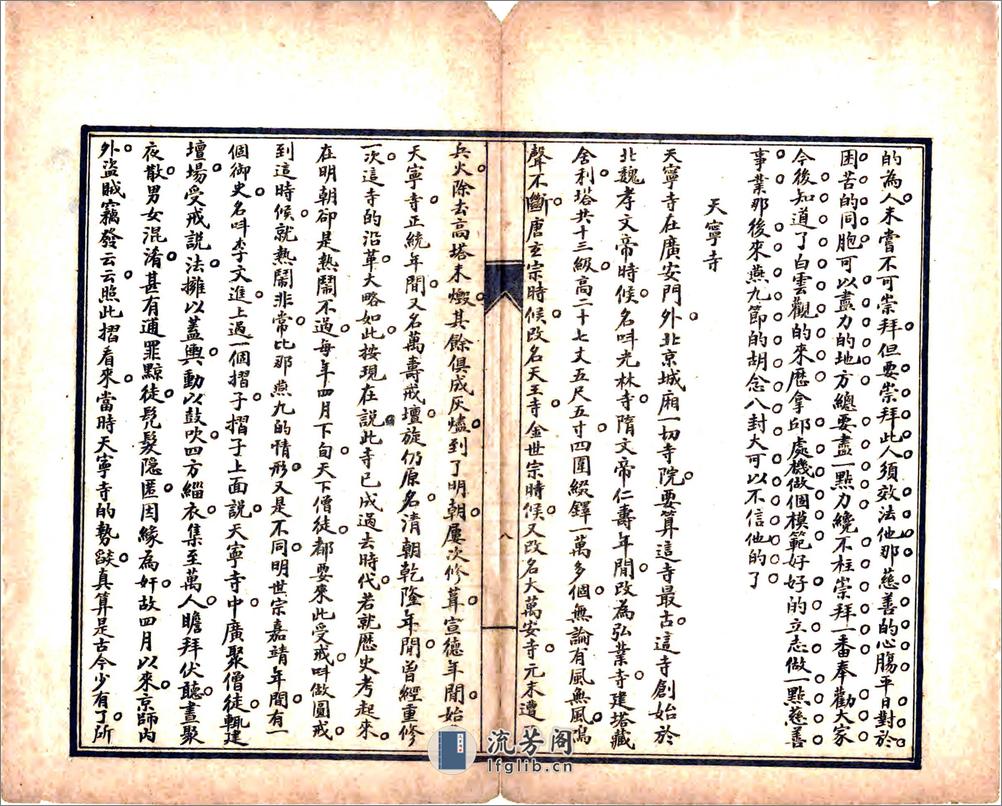 的為人未嘗不可崇拜但要崇拜此人須效法他那慈善的心腸平日對於
困苦的同胞可以盡力的地方總要盡一點力纔不枉崇拜一番奉勸大家
今後知道了白雲觀的來歷拿邱處機做個模範好好的立志做一點慈善
事業那後來燕九節的胡念八封大可以不信他的了
天寧寺
天寧寺在廣安門外北京城廂一切寺院要算這寺最古這寺創始於
北魏孝文帝時候名呌光林寺隋文帝仁壽年間改為弘業寺建塔藏
舍利塔共十三級高二十七丈五尺五寸四圍綴鐸一萬多個無論有風無風鳴
聲不斷唐玄宗時候改名天王寺金世宗時候又改名大萬安寺元末遭
八
兵火除去高塔未燬其餘俱成灰燼到了明朝屢次修葺宣德年間始
天寧寺正統年間又名萬壽戒壇旋仍原名清朝乾隆年間曾經重修
一次這寺的沿革大略如此按現在說此寺已成過去時代若就歷史考起來
在明朝卻是熱鬧不過每年四月下旬天下僧徒都要來此受戒呌做圓戒
到這時候就熱鬧非常比那燕九的情形又是不同明世宗嘉靖年間有一
個御史名呌李文進上過一個摺子摺子上面說天寧寺中廣聚僧徒輒建
壇場受戒說法擁以蓋輿動以鼓吹四方緇衣集至萬人瞻拜伏聽晝聚
夜散男女混淆甚有逋罪黥徒髠髮隱匿因緣為奸故四月以來京師內
外盜賊竊發云云照此摺看來當時天寧寺的勢燄真算是古今少有了所
流芳阁
lfglib.cn